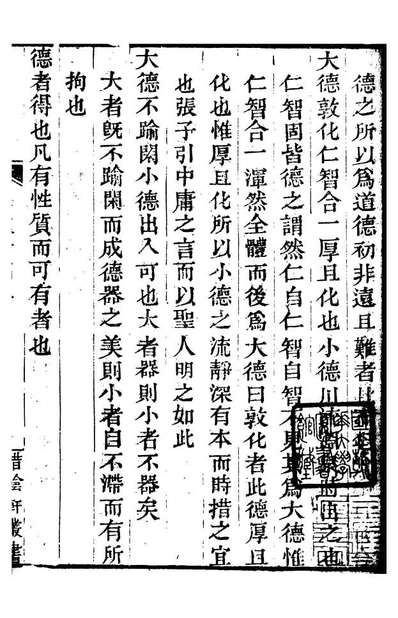 德之所以為道德初非遠且難者
大德敦化仁智合一厚且化也小德川流淵泉時出之也
仁智固皆德之謂然仁自仁智自智不足為大德惟
仁智合一渾然全體而後為大德曰敦化者此德厚且
化也惟厚且化所以小德之流靜深有本而時措之宜
也張子引中庸之言而以聖人明之如此
大德不踰閑小德出入可也大者器則小者不器矣
大者旣不踰閑而成德器之美則小者自不滯而有所
拘也
德者得也凡有性質而可有者也
惜陰軒叢書